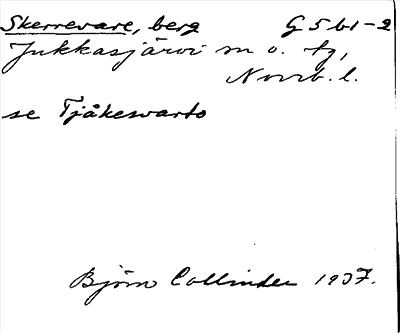 Skerrevare, berg G5b1-2
Jukkasjärvi sn o. tg,
Norrb. l.
se Tjåkesvarto
Björn Collinder 1937.